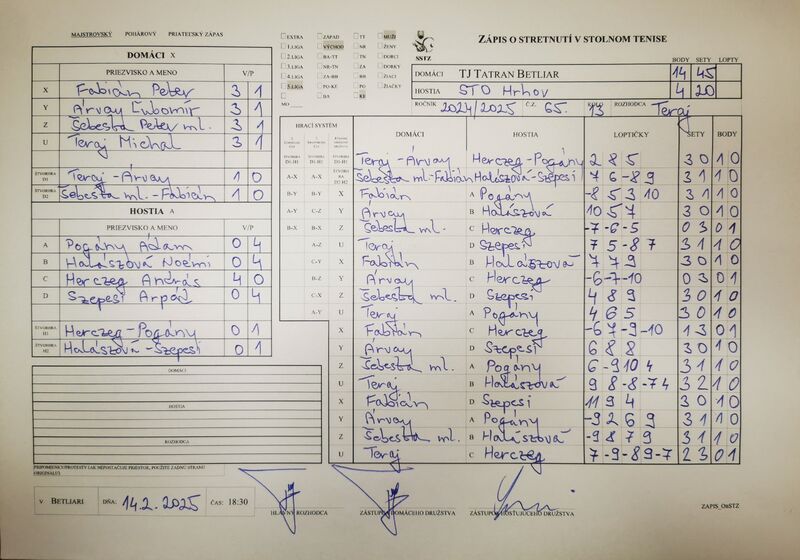 MAJSTROVSKÝ POHÁROVÝ PRIATEĽSKÝ ZÁPAS
DOMÁCI X
PRIEZVISKO A MENO V/P
X Fabián Peter 3 1
Y Árvay Ľubomír 3 1
Z Šebesta Peter ml. 3 1
U Teraj Michal 3 1
ŠTVORHRA D1 Teraj - Árvay 1 0
ŠTVORHRA D2 Šebesta ml. - Fabián 1 0
HOSTIA A
PRIEZVISKO A MENO V/P
A Pogány Ádam 0 4
B Halászová Noémi 0 4
C Herczeg András 4 0
D Szepesi Arpád 0 4
ŠTVORHRA H1 Herczeg - Pogány 0 1
ŠTVORHRA H2 Halászová - Szepesi 0 1
DOMÁCI
HOSTIA
ROZHODCA
PRIPOMIENKY/PROTESTY (AK NEPOSTAČUJE PRIESTOR, POUŽITE ZADNÚ STRANU ORIGINÁLU)
V BETLIARI DŇA: 14.2.2025 ČAS: 18:30
EXTRA ZÁPAD TT MUŽI
1.LIGA VÝCHOD NR ŽENY
2.LIGA BA-TT TN DORCI
3.LIGA NR-TN ZA DORKY
4.LIGA ZA-BB BB ŽIACI
5.LIGA PO-KE PO ŽIAČKY
BA KE
MO
SSTZ
ZÁPIS O STRETNUTÍ V STOLNOM TENISE
BODY SETY LOPTY
DOMÁCI TJ TATRAN BETLIAR 14 45
HOSTIA STO Hrhov 4 20
ROČNÍK 2024/2025 Č.Z. 65. KOLO 13 ROZHODCA Teraj
HRACÍ SYSTÉM DOMÁCI HOSTIA LOPTIČKY SETY BODY
Teraj - Árvay Herczeg - Pogány 2 8 5 3 0 1 0
Šebesta ml. - Fabián Halászová - Szepesi 7 6 -8 9 3 1 1 0
A-X B-Y X Fabián A Pogány -8 5 3 10 3 1 1 0
Y Árvay B Halászová 10 5 7 3 0 1 0
Z Šebesta ml. C Herczeg -7 -6 -5 0 3 0 1
A-Z U Teraj D Szepesi 7 5 -8 7 3 1 1 0
C-Y X Fabián B Halászová 7 7 9 3 0 1 0
B-Z Y Árvay C Herczeg -6 -7 -10 0 3 0 1
C-X Z Šebesta ml. D Szepesi 4 8 9 3 0 1 0
A-Y U Teraj A Pogány 4 6 5 3 0 1 0
X Fabián C Herczeg -6 7 -9 -10 1 3 0 1
Y Árvay D Szepesi 6 8 8 3 0 1 0
Z Šebesta ml. A Pogány 6 -9 10 4 3 1 1 0
U Teraj B Halászová 9 8 -8 -7 4 3 2 1 0
X Fabián D Szepesi 11 9 4 3 0 1 0
Y Árvay A Pogány -9 2 6 9 3 1 1 0
Z Šebesta ml. B Halászová -9 8 7 9 3 1 1 0
U Teraj C Herczeg 7 -9 -8 9 -7 2 3 0 1
HLAVNÝ ROZHODCA ZÁSTUPCA DOMÁCEHO DRUŽSTVA ZÁSTUPCA HOSŤUJÚCEHO DRUŽSTVA
ZAPIS_OnSTZ